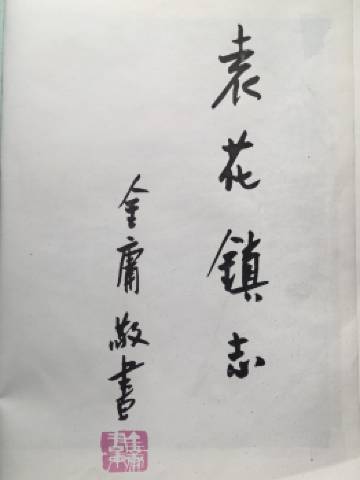 袁花鎮志
金庸敬書